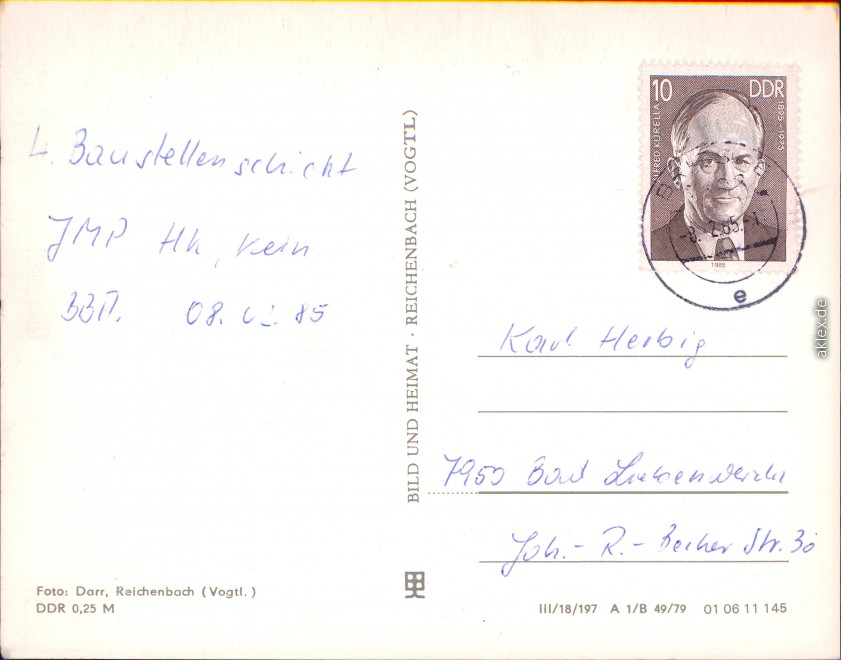 4. Baustellenschicht
JMP Hk, kein
08. 02. 85
BILD UND HEIMAT · REICHENBACH (VOGTL)
10 DDR
ALFRED KURELLA
1895-1975
1985
-8.-2.85.-
e
Karl Herbig
7950 Bad Liebenwerda
Joh.- R.- Becher Str. 30
Foto: Darr, Reichenbach (Vogtl.)
DDR 0,25 M
III/18/197 A 1/B 49/79 01 06 11 145
aklex.de